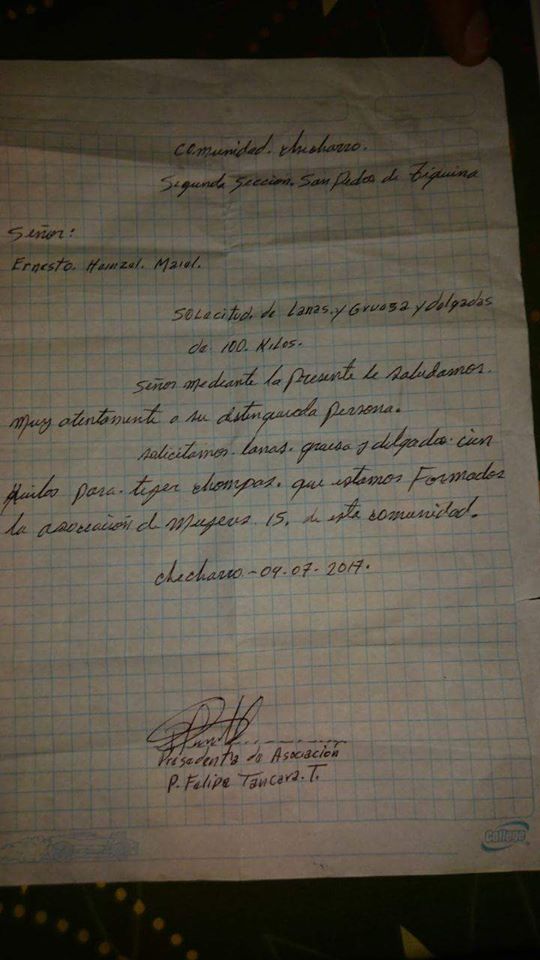 Comunidad. chicharro.
Segunda Seccion. San Pedro de Tiquina
Señor:
Ernesto. Hainzol. Maiol.
Solacitud. de Lanas. y Gruesa y dolgadas
de 100. Kilos.
Señor mediante la presente le saludamos.
muy atentamente a su distinguida persona.
solicitamos. lanas. gruesa y delgados. cien
kuilos para. tejer chompas. que estamos Formados
la asociación de Mujeres 15. de esta comunidad.
chicharro - 09.07.2017.
Presedenta de Asociación
P. Felipa Tancara. T.
College